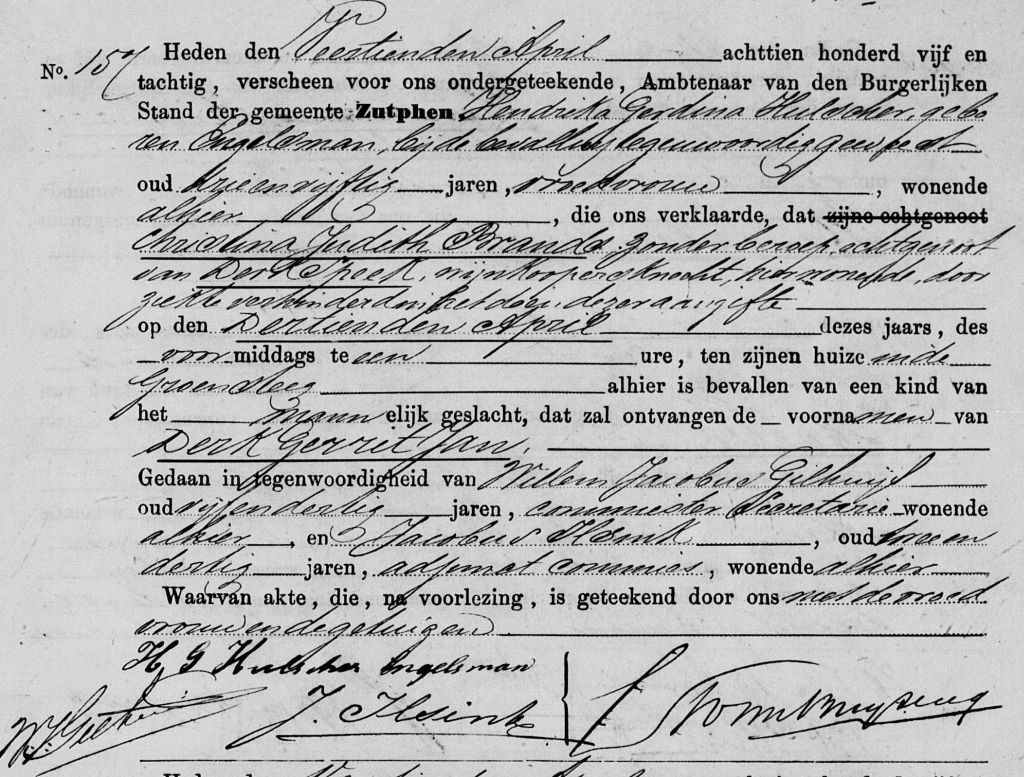 No. 157 Heden den Veertienden April achttien honderd vijf en
tachtig, verscheen voor ons ondergeteekende, Ambtenaar van den Burgerlijken
Stand der gemeente Zutphen, Hendrika Gerdina Hulscher, gebo
ren Engelsman, bij de bevalling tegenwoordig geweest
oud tweeenvijftig jaren, vroedvrouw, wonende
alhier, die ons verklaarde, dat zijne echtgenoot
Christina Judith Brands, zonder beroep, echtgenoot
van Derk Speek, wijnkoopersknecht, hier wonende, door
ziekte verhinderd in het doen dezer aangifte
op den Dertienden April dezes jaars, des
voor middags te een ure, ten zijnen huize in de
Groensteeg alhier is bevallen van een kind van
het mann elijk geslacht, dat zal ontvangen de voorna men van
Derk Gerret Jan.
Gedaan in tegenwoordigheid van Willem Jacobus
oud vijfendertig jaren, commies ter Secretarie wonende
alhier, en Jacobus Ilsink, oud twee en
dertig jaren, adjunct commies, wonende alhier
Waarvan akte, die, na voorlezing, is geteekend door ons met de vroed
vrouw en de getuigen
H G Hulscher Engelsman
J. Ilsink